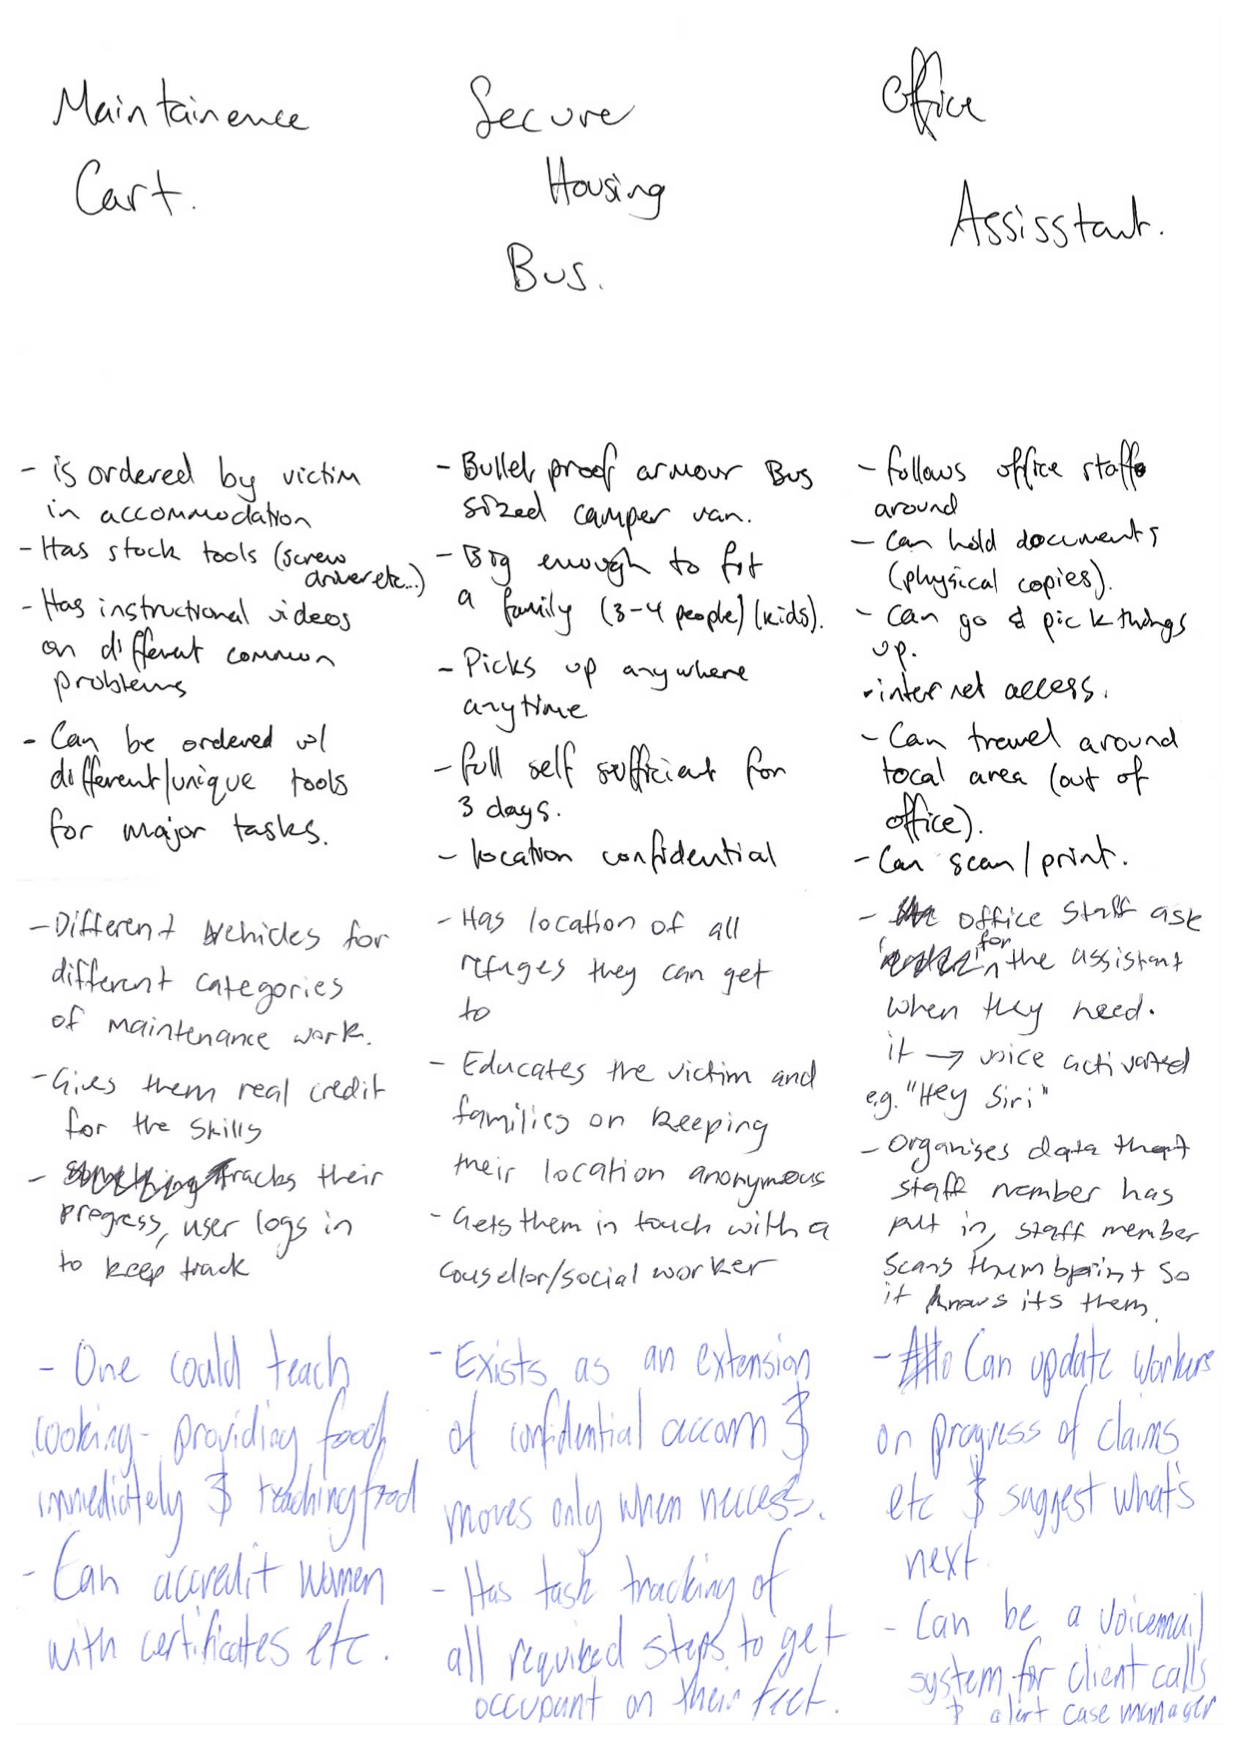 Maintainence
Cart.
- is ordered by victim
in accommodation
- Has stock tools (screw
driver etc...)
- Has instructional videos
on different common
problems
- Can be ordered w/
different/unique tools
for major tasks.
- Different vehicles for
different categories
of maintenance work.
- Gives them real credit
for the skills
- tracks their
progress, user logs in
to keep track
- One could teach
cooking - providing food
immediately & teaching food
- Can accredit women
with certificates etc.
Secure
Housing
Bus.
- Bullet proof armour Bus
sized camper van.
- Big enough to fit
a family (3-4 people) (kids).
- Picks up anywhere
anytime
- full self sufficient for
3 days.
- location confidential
- Has location of all
refuges they can get
to
- Educates the victim and
families on keeping
their location anonymous
- Gets them in touch with a
cousellor/social worker
- Exists as an extension
of confidential accom &
moves only when necess.
- Has task tracking of
all required steps to get
occupant on their feet.
Office
Assisstant.
- follows office staff
around
- can hold documents
(physical copies).
- can go & pick things
up.
- internet access.
- Can travel around
local area (out of
office).
- Can scan/print.
- office staff ask
for the assistant
when they need.
it → voice activated
e.g. "Hey Siri"
- Organises data that
staff member has
put in, staff member
scans thumbprint so
it knows its them.
- Can update workers
on progress of claims
etc & suggest what's
next.
- Can be a voicemail
system for client calls
& alert case manager